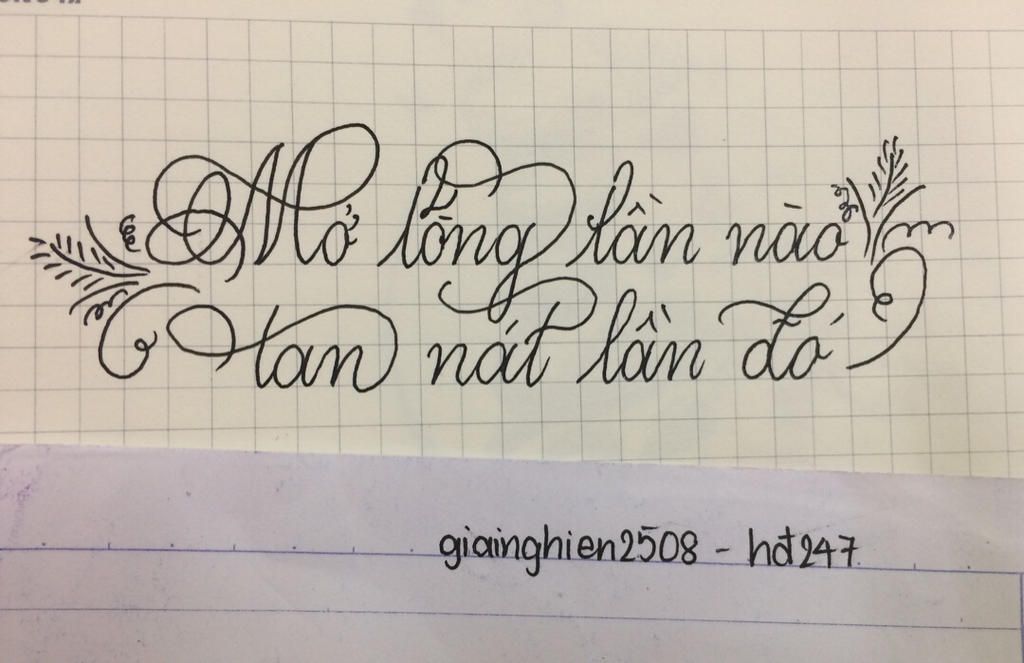 Mở lòng lần nào
tan nát lần đó
giainghien2508 - hđ247